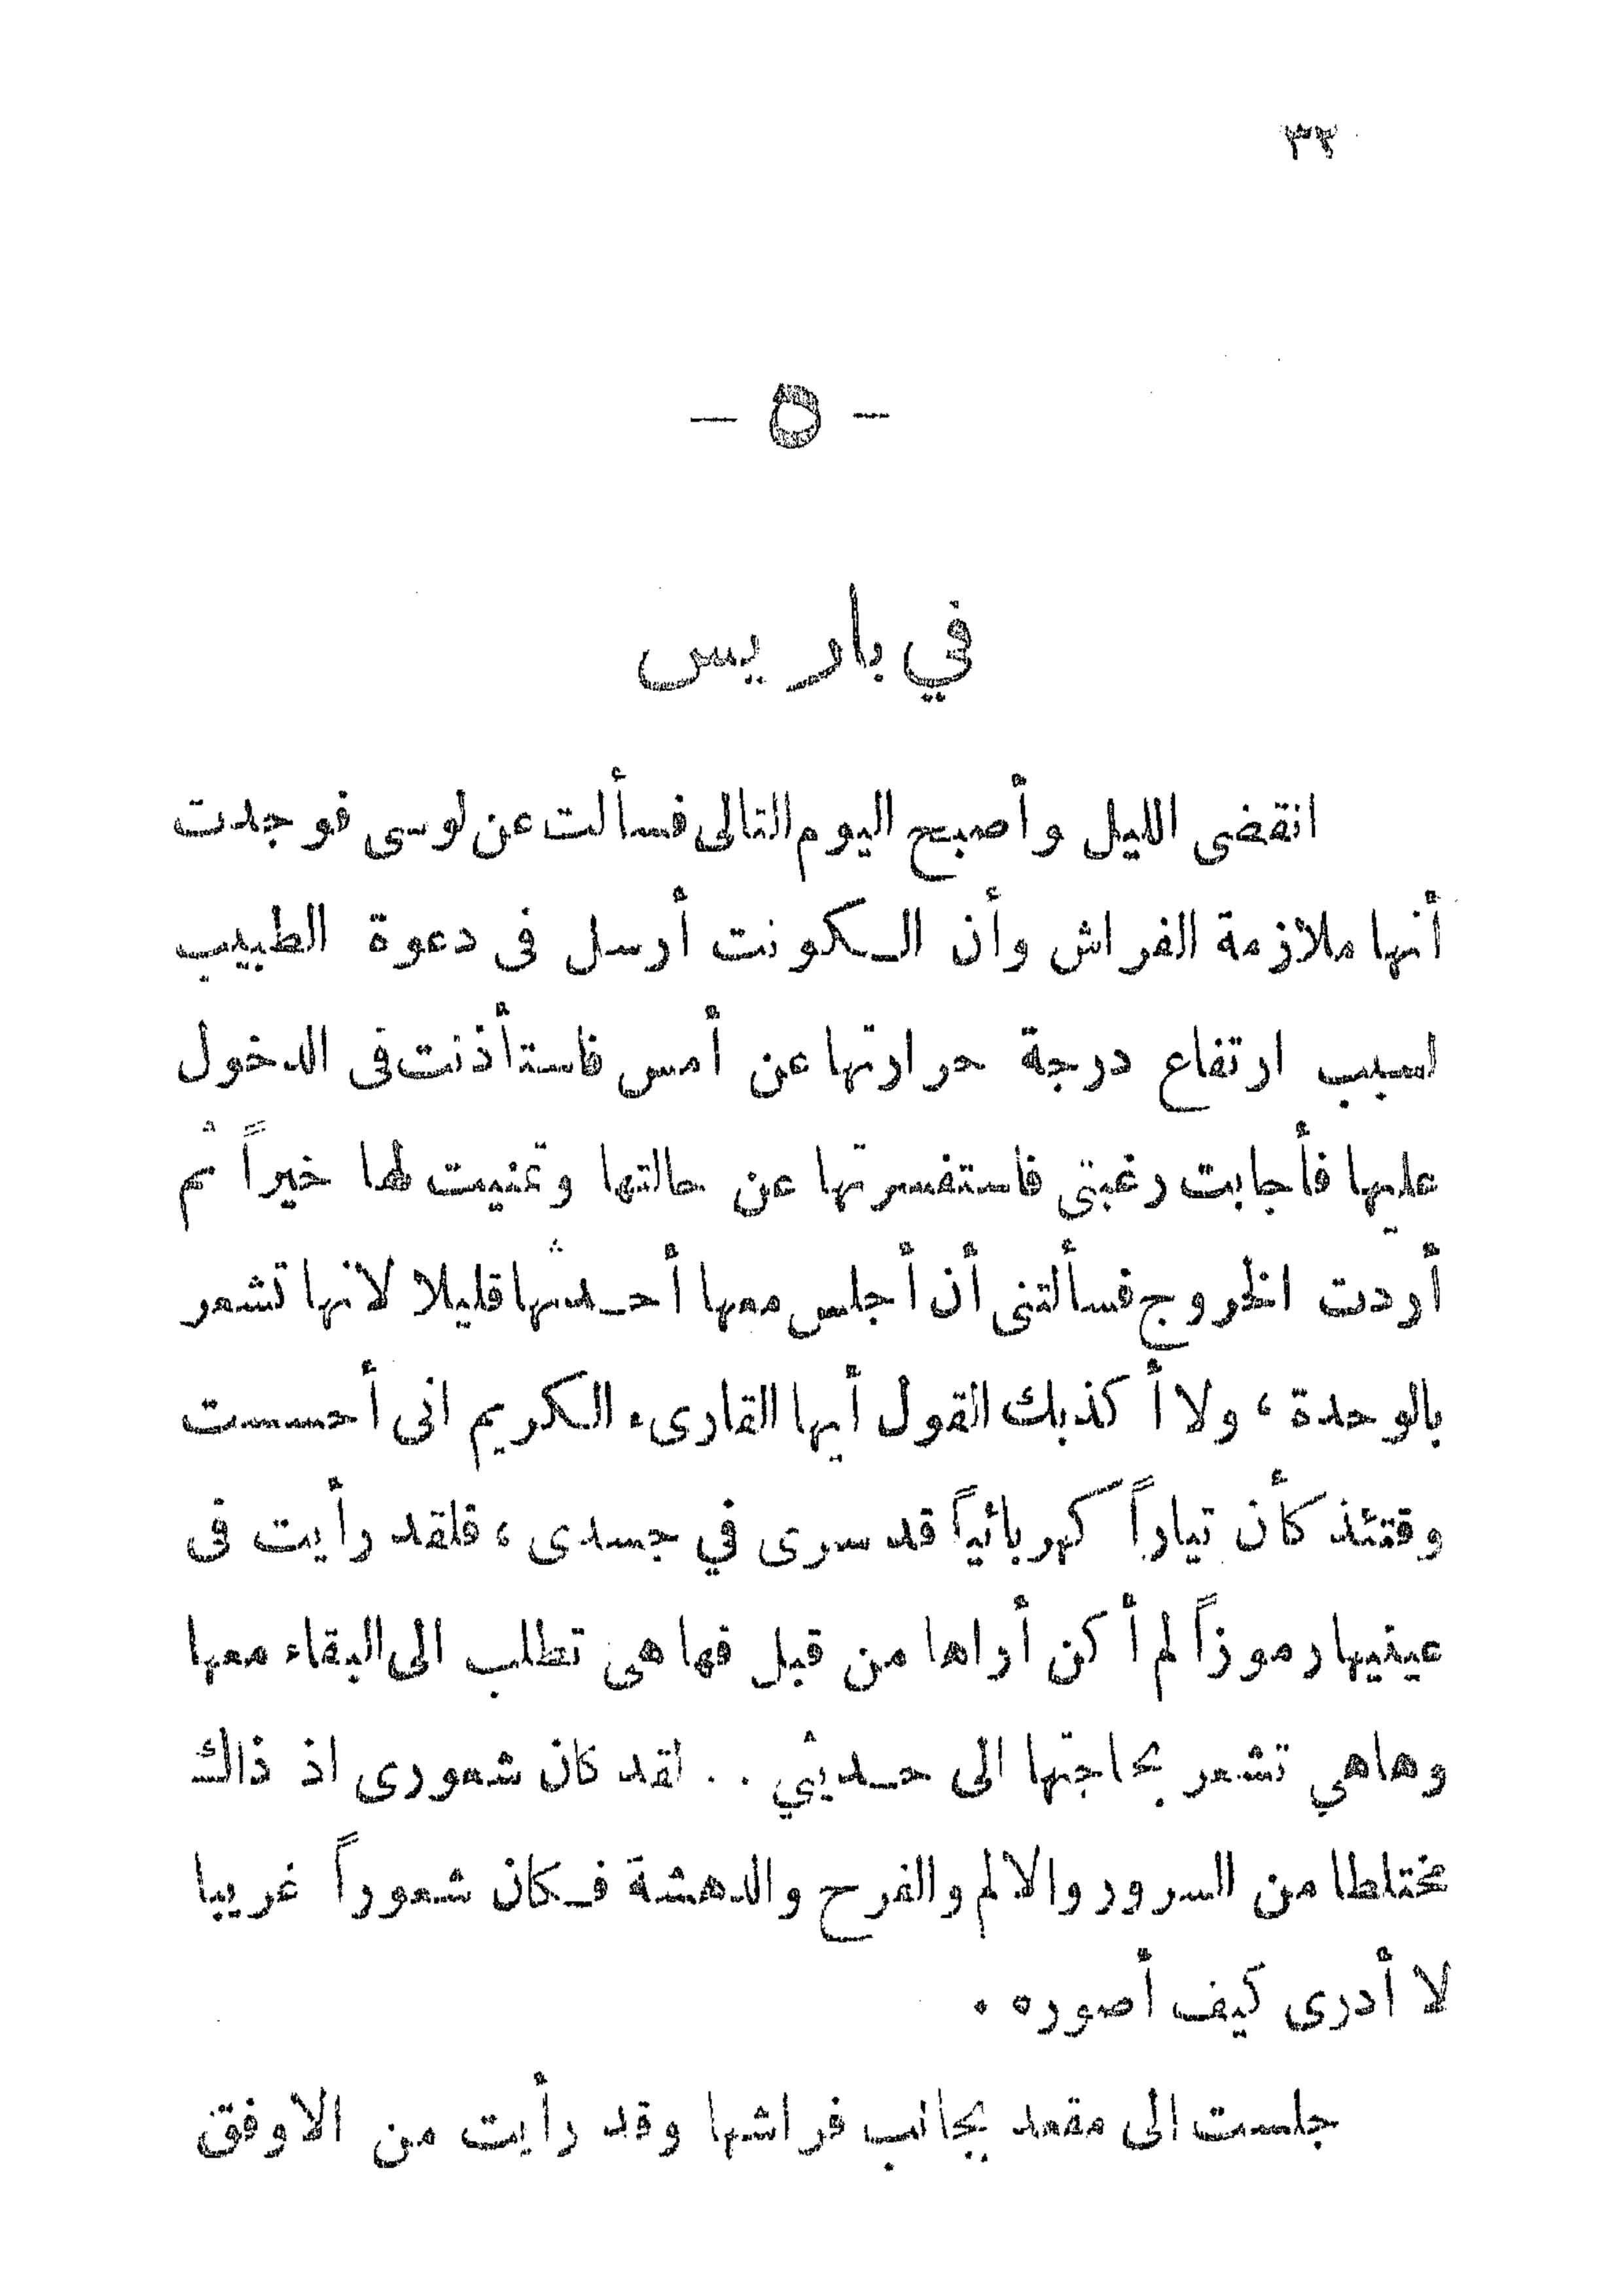 ٣٢
— ٥ —
في باريس
انقضى الليل وأصبح اليوم التالى فسألت عن لوسى فوجدت
أنها ملازمة الفراش وأن الكونت أرسل فى دعوة الطبيب
لسبب ارتفاع درجة حرارتها عن أمس فاستأذنت فى الدخول
عليها فأجابت رغبتى فاستفسرتها عن حالتها وتمنيت لها خيراً ثم
أردت الخروج فسألتنى أن أجلس معها أحدثها قليلا لانها تشعر
بالوحدة ، ولا أكذبك القول أيها القارىء الكريم انى أحسست
وقتئذ كأن تياراً كهربائياً قد سرى في جسدى ، فلقد رأيت فى
عينيها رموزاً لم أكن أراها من قبل فها هى تطلب الى البقاء معها
وهاهي تشعر بحاجتها الى حديثي . . لقد كان شعورى اذ ذاك
مختلطا من السرور والالم والفرح والدهشة فكان شعوراً غريبا
لا أدرى كيف أصوره .
جلست الى مقعد بجانب فراشها وقد رأيت من الاوفق